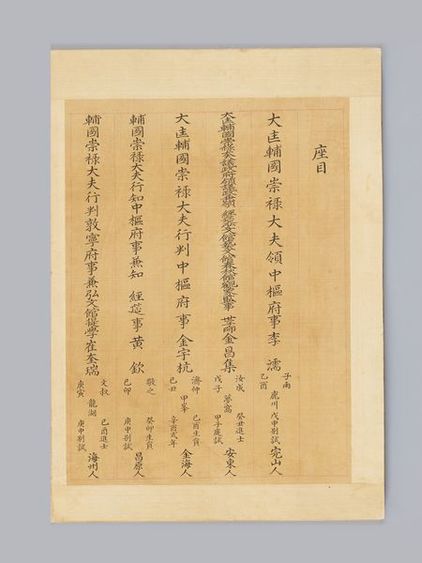 座目
大匡輔國崇祿大夫領中樞府事李 濡 子雨 乙酉 鹿川 戊申別試 完山人
大匡輔國崇祿大夫議政府領議政兼領 經筵弘文館藝文館春秋館觀象監事 世子師金昌集 汝成 戊子 夢窩 癸丑進士 甲子庭試 安東人
大匡輔國崇祿大夫行判中樞府事金宇杭 濟仲 己丑 甲峯 己酉生員 辛酉式年 金海人
輔國崇祿大夫行知中樞府事兼知 經筵事黃 欽 敬之 己卯 癸卯生員 庚申別試 昌原人
輔國崇祿大夫行判敦寧府事兼弘文館提學崔奎瑞 文叔 庚寅 龍湖 己酉進士 庚申別試 海州人